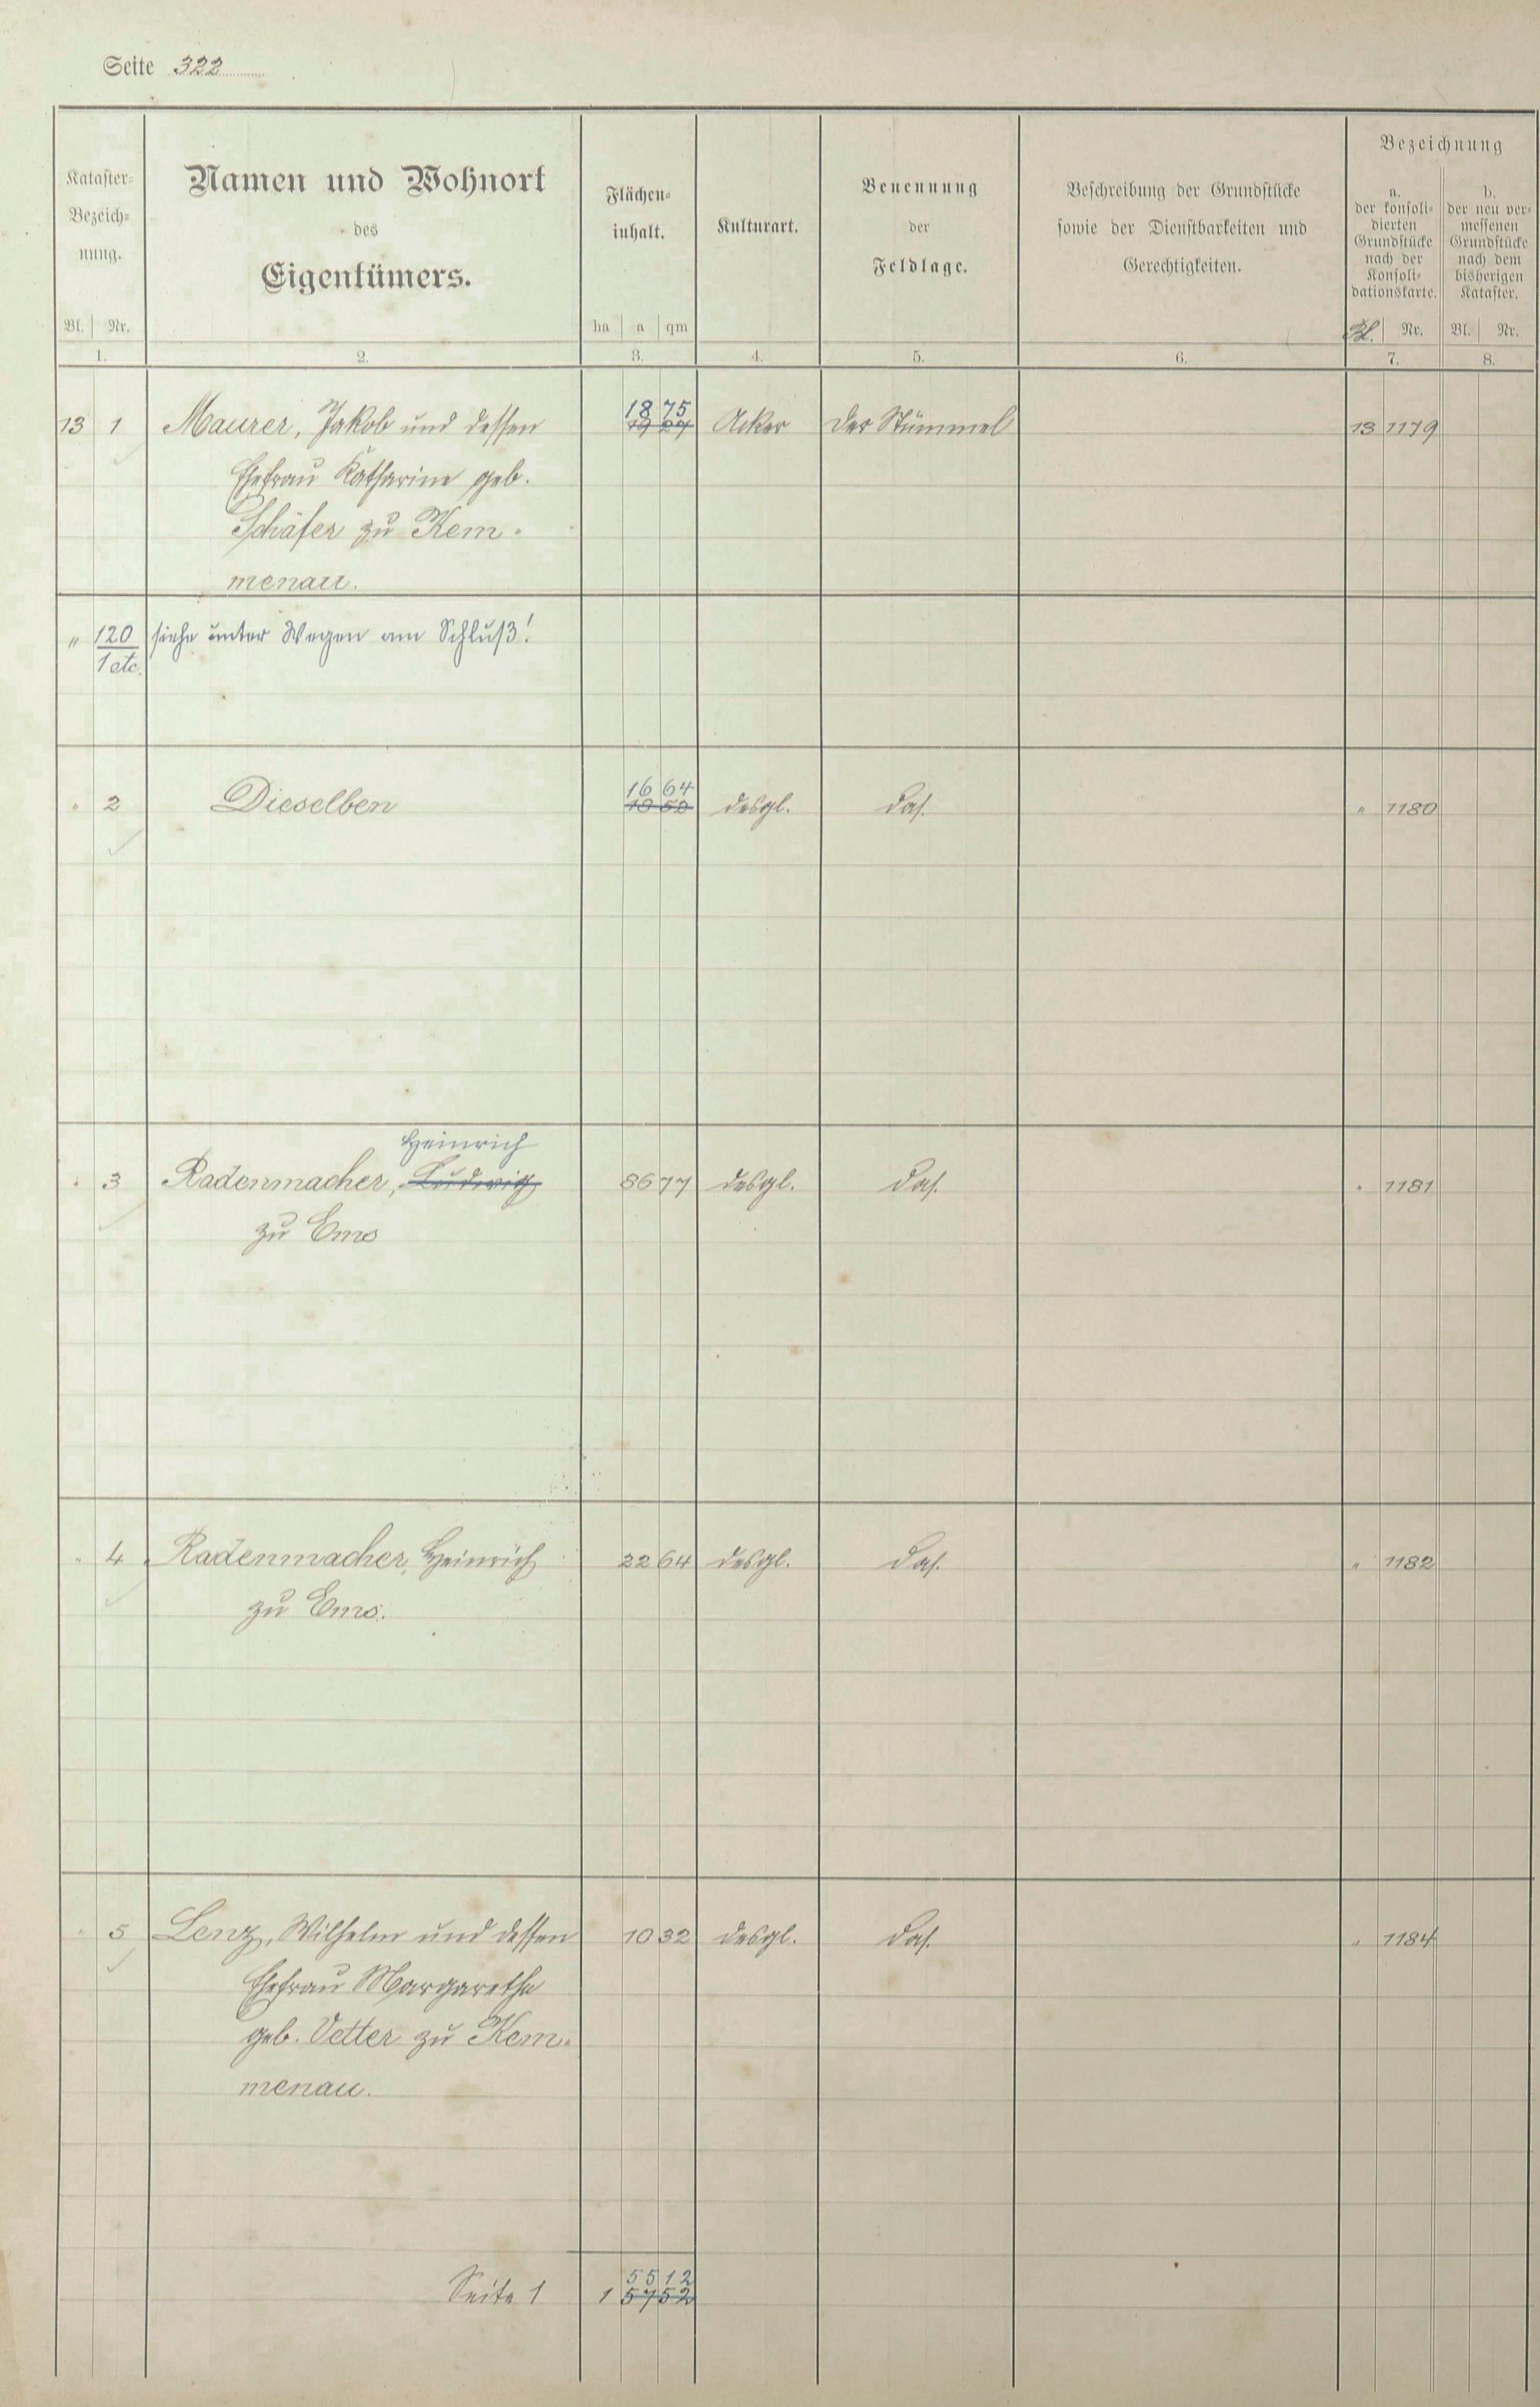 Seite 322
Kataster-
Bezeich-
nung.
Bl. Nr.
1.
Namen und Wohnort
des
Eigentümers.
2.
Flächen-
inhalt.
ha a qm
3.
Kulturart.
4.
Benennung
der
Feldlage.
5.
Beschreibung der Grundstücke
sowie der Dienstbarkeiten und
Gerechtigkeiten.
6.
Bezeichnung
a.
der konsoli-
dierten
Grundstücke
nach der
Konsoli-
dationskarte.
Bl. Nr.
7.
b.
der neu ver-
messenen
Grundstücke
nach dem
bisherigen
Kataster.
Bl. Nr.
8.
18 75
13 1 Maurer, Jakob und dessen Acker Der Stümmel 13 1179
Ehefrau Katharine geb.
Schäfer zu Kem-
menau.
" 120 siehe unter Wegen am Schluß!
1 etc.
16 64
" 2 Dieselben desgl. das. " 1180
Heinrich
" 3 Radenmacher, Ludwig 86 77 desgl. das. " 1181
zu Ems
" 4 Radenmacher, Heinrich 22 64 desgl. das. " 1182
zu Ems.
" 5 Lenz, Wilhelm und dessen 10 32 desgl. das. " 1184
Ehefrau Margarethe
geb. Vetter zu Kem-
menau.
55 12
Seite 1 1 57 52